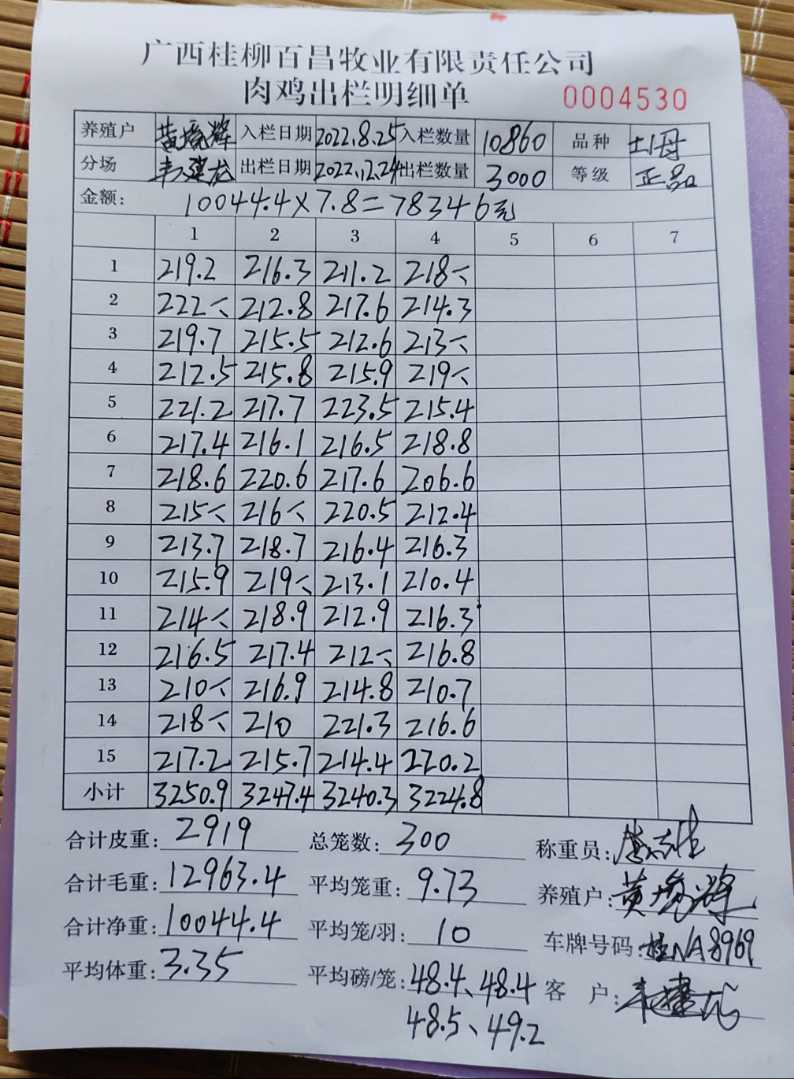 广西桂柳百昌牧业有限责任公司
肉鸡出栏明细单 0004530
养殖户 黄 辉 入栏日期 2022.8.25 入栏数量 10860 品种 土1母
分场 韦建龙 出栏日期 2022.12.24 出栏数量 3000 等级 正品
金额: 10044.4×7.8=78346元
1 2 3 4 5 6 7
1 219.2 216.3 211.2 218<
2 222< 212.8 217.6 214.3
3 219.7 215.5 212.6 213<
4 212.5 215.8 215.9 219<
5 221.2 217.7 223.5 215.4
6 217.4 216.1 216.5 218.8
7 218.6 220.6 217.6 206.6
8 215< 216< 220.5 212.4
9 213.7 218.7 216.4 216.3
10 215.9 219< 213.1 210.4
11 214< 218.9 212.9 216.3
12 216.5 217.4 212< 216.8
13 210< 216.9 214.8 210.7
14 218< 210 221.3 216.6
15 217.2 215.7 214.4 220.2
小计 3250.9 3247.4 3240.3 3224.8
合计皮重: 2919 总笼数: 300 称重员:
合计毛重: 12963.4 平均笼重: 9.73 养殖户: 黄 辉
合计净重: 10044.4 平均笼/羽: 10 车牌号码: 桂NA8969
平均体重: 3.35 平均磅/笼: 48.4、48.4 客 户: 韦建龙
48.5、49.2